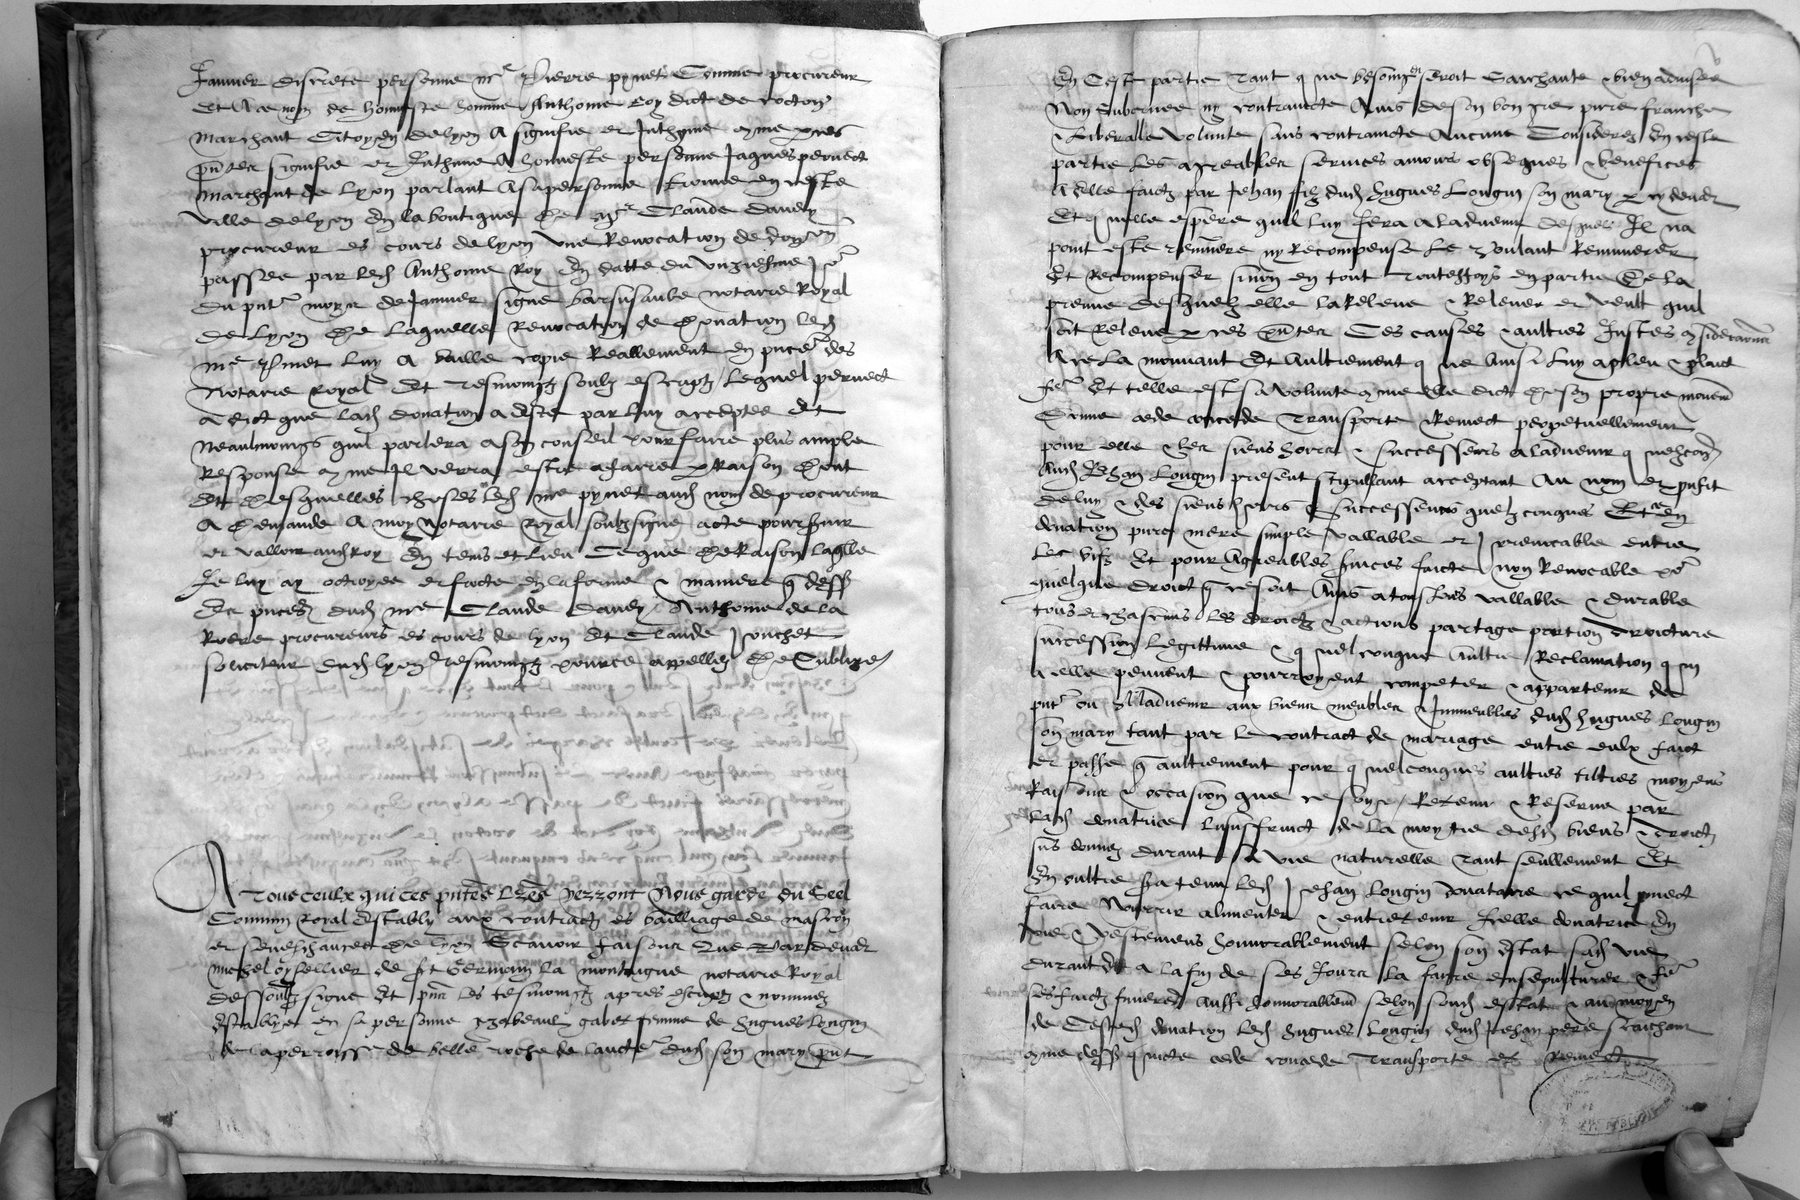 Janvier discrete personne me Pierre pynet comme procureur
et au nom de honneste homme Anthoine Roy dict de
marchant citoyen de lyon a signiffie et inthime comme par ces
pntes signiffie et inthime a honneste personne Jaques pernect
marchant de lyon parlant a sa personne trouve en ceste
ville de lyon en la boutique de me Claude Dandey
procureur es cours de lyon une Revocation de don
passee par led Anthoine Roy en datte du unziesme jor
du pnt moys de Janvier signe notaire Royal
de lyon de laquelle Revocation de donation led
me pynet luy a baille copie Reallement en pnce des
notaire Royal et tesmoingz soubz escriptz lequel pernect
a dict que lad donation a este par luy acceptee et
neaulmoings quil parlera a son conseil pour faire plus ample
Response comme Il verra estre a faire par Raison dont
et desquelles choses led me pynet aud nom de procureur
a demande a moy notaire Royal soubzsigne acte pour servir
et valloir aud Roy en tems et lieu ce que de Raison laqlle
Je luy ay octroyee et faicte en la forme & maniere q dessus
es pnces dud me Claude Dandey Anthoine de la
Roere procureurs es cours de lyon et Claude Ponchet
soliciteur aud lyon tesmoingz pource appellez
A Tous ceulx qui ces pntes lres verront Nous garde du Seel
Commun Royal establly aux contractz es bailliage de mascon
et seneschaucee de lyon Scavoir faisons Que Par devant
michel oysellier de St Germain la montaigne notaire Royal
dessoubz signe et pnt les tesmoingz apres escriptz & nommez
establye en sa personne yzabeaul gabet femme de hugues Longin
de la perroisse de belle roche de laucte dud son mary pnt
En ceste partie tant q ne besoing en seroit Saichante & bien advisee
Non subornee ny contraincte Ains de son bon gre pure franche
& liberalle volunte sans contraincte aucune Considerez en ceste
partie les agreables services amours obseques & benefices
a elle faictz par Jehan filz dud hugues Longin son mary par cy devant
Et quelle espere quil luy fera a ladvenir desquelz Il na
point este remunere ny Recompense Le voulant Remunerer
Et Recompenser sinon en tout toutesfoys en partie De la
preuve desquelz elle la Releve & Relever et veult quil
soit Releve par ces pntes Ces causes & aultres Justes consideracions
a ce la mouvant Et Aultrement q ne Ainsi luy a pleu & plaict
fe Et telle est sa volunte comme elle dict De son propre mouvem
Donne cede concede Transporte & Remect perpetuellement
pour elle & ses siens hoirs & successeurs a ladvenir
Aud Jehan Longin present stipullant acceptant Au nom et proffit
de luy & des siens hoirs & successeurs quelzconques
donation pure mere simple vallable et Irrevocable entre
les vifz Et pour Agreables services faicte non Revocable par
quelque droict q ce soit Ains a tousiours vallable & durable
tous et chascuns les droictz & actions partage portion droicture
succession Legittime & quelconque aultre Reclamation
a elle peuvent & pourroyent competer & appartenir de
pnt ou a ladvenir aux biens meubles & Immeubles dud hugues Longin
son mary tant par le contract de mariage entre eulx faict
et passe q aultrement pour quelconques aultres tiltres moyens
Raisons & occasion que ce soy Retenu & Reserve par
lad donatrice lusuffruict de la moytie desd biens & droictz
sus donnez durant sa vie naturelle Tant seullement Et
En oultre sera tenu led Jehan Longin donataire ce quil promect
faire Nourrir alimenter & entretenir Icelle donatrice en
vie & vestemens honnorablement selon son estat sad vie
durant et a la fin de ses Jours la faire ensepulturer & fe
ses faictz funeres Aussi honnorablemt selon sond estat & au moyen
de Cested donation led hugues Longin dud Jehan pere saichant
comme dess quicte cede concede Transporte et Remect